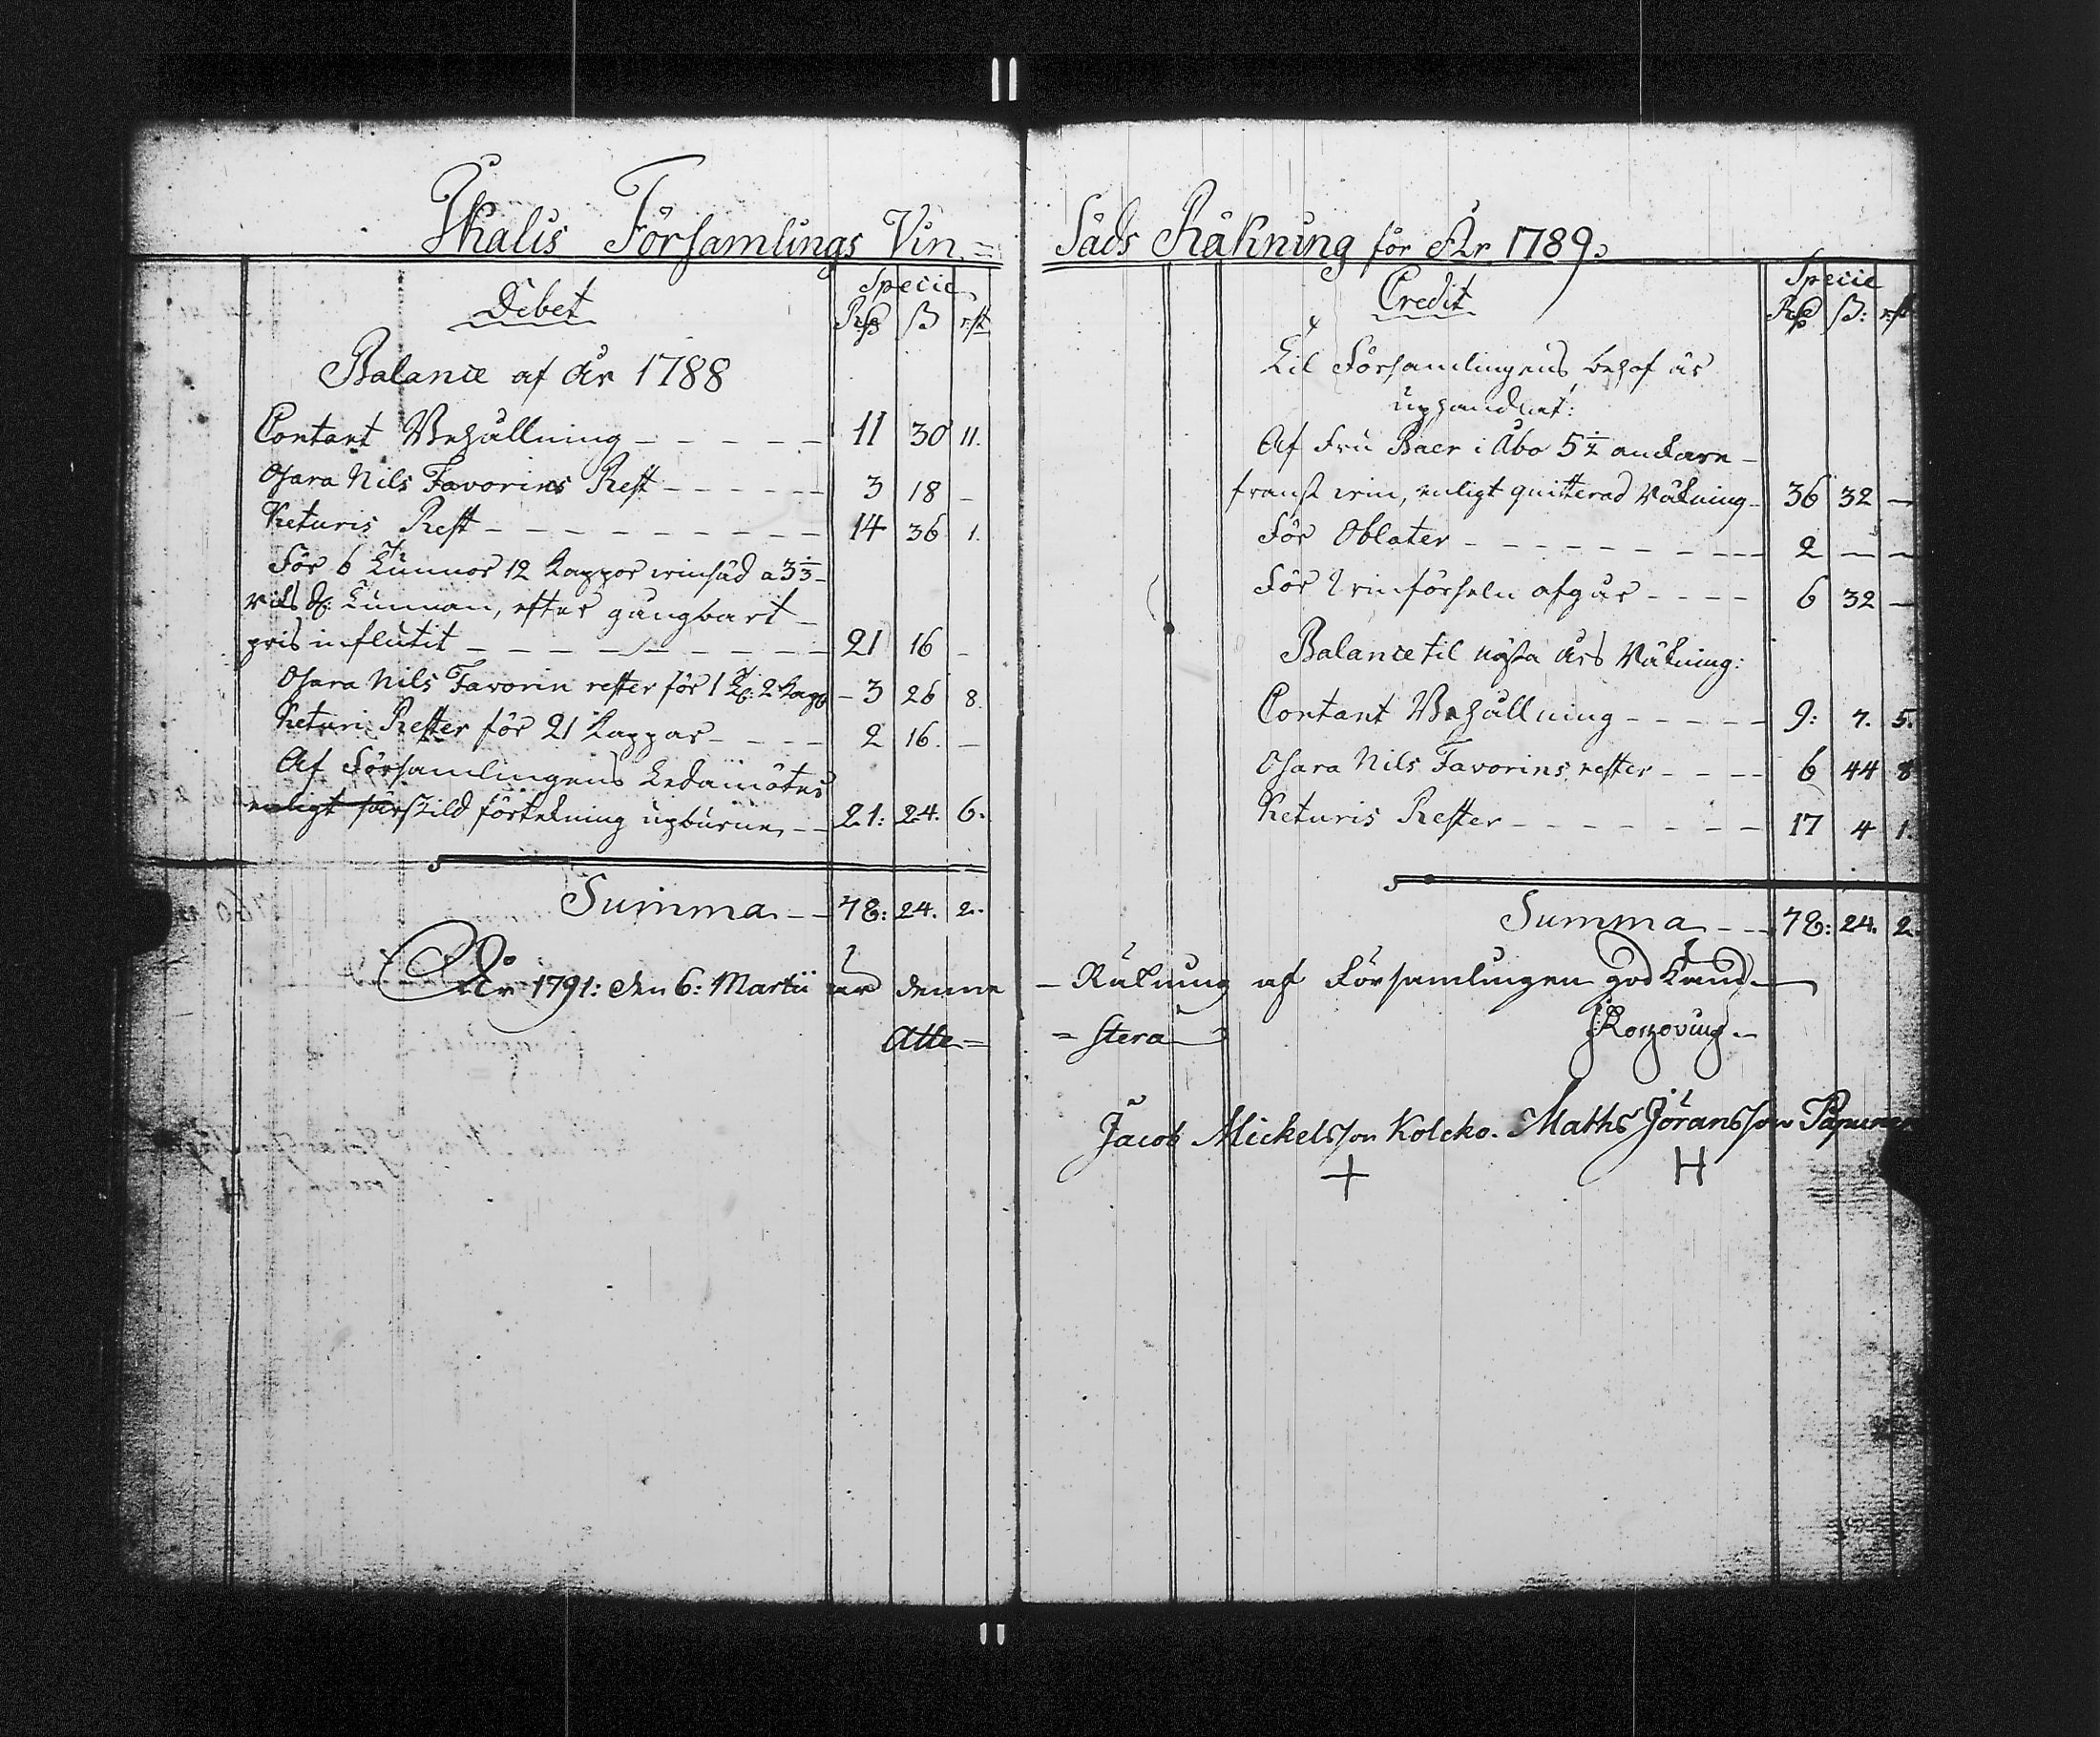 Ikalis Församlings Vin=
Debet
Specie
Rd ß rst
Balance af År 1788
Contant Behållning - - - - - 11 30 11.
Osara Nils Favorins Rest - - - - - 3 18 -
Keturis Rest - - - - - - - - 14 36 1.
För 6 Tunnor 12 Kappor winsäd a 3 1/3
Rds Tunnan, efter gångbart
pris influtit - - - - - - 21 16 -
Osara Nils Favorin rester för 1 T: 2 Kapp - 3 26 8.
Keturi Rester för 21 Kappar - - - - 2 16. -
Af Församlingens Ledamöter
enligt särskild förtekning upburne - - 21: 24. 6.
Summa - - 78: 24. 2.
År 1791: den 6: Martii är denne
Atte=
Säds Räkning för År 1789.
Credit
Specie
Rd ß: rst
Til Församlingens behof är
uphandlat:
Af Fru Baer i Åbo 5 1/2 ankare
franst win, enligt quitterad Räkning - 36 32 -
För Oblater - - - - - - - - 2 - -
För winförseln afgår - - - - 6 32 -
Balance til nästa års Räkning:
Contant Behållning - - - - - 9: 7. 5.
Osara Nils Favorins rester - - - - 6 44 8
Keturis Rester - - - - - - - 17 4 1.
Summa - - 78: 24. 2.
- Räkning af Församlingen god Känd
= stera
Jacob Mickelsson Kolcko. Maths Jöransson
+ H